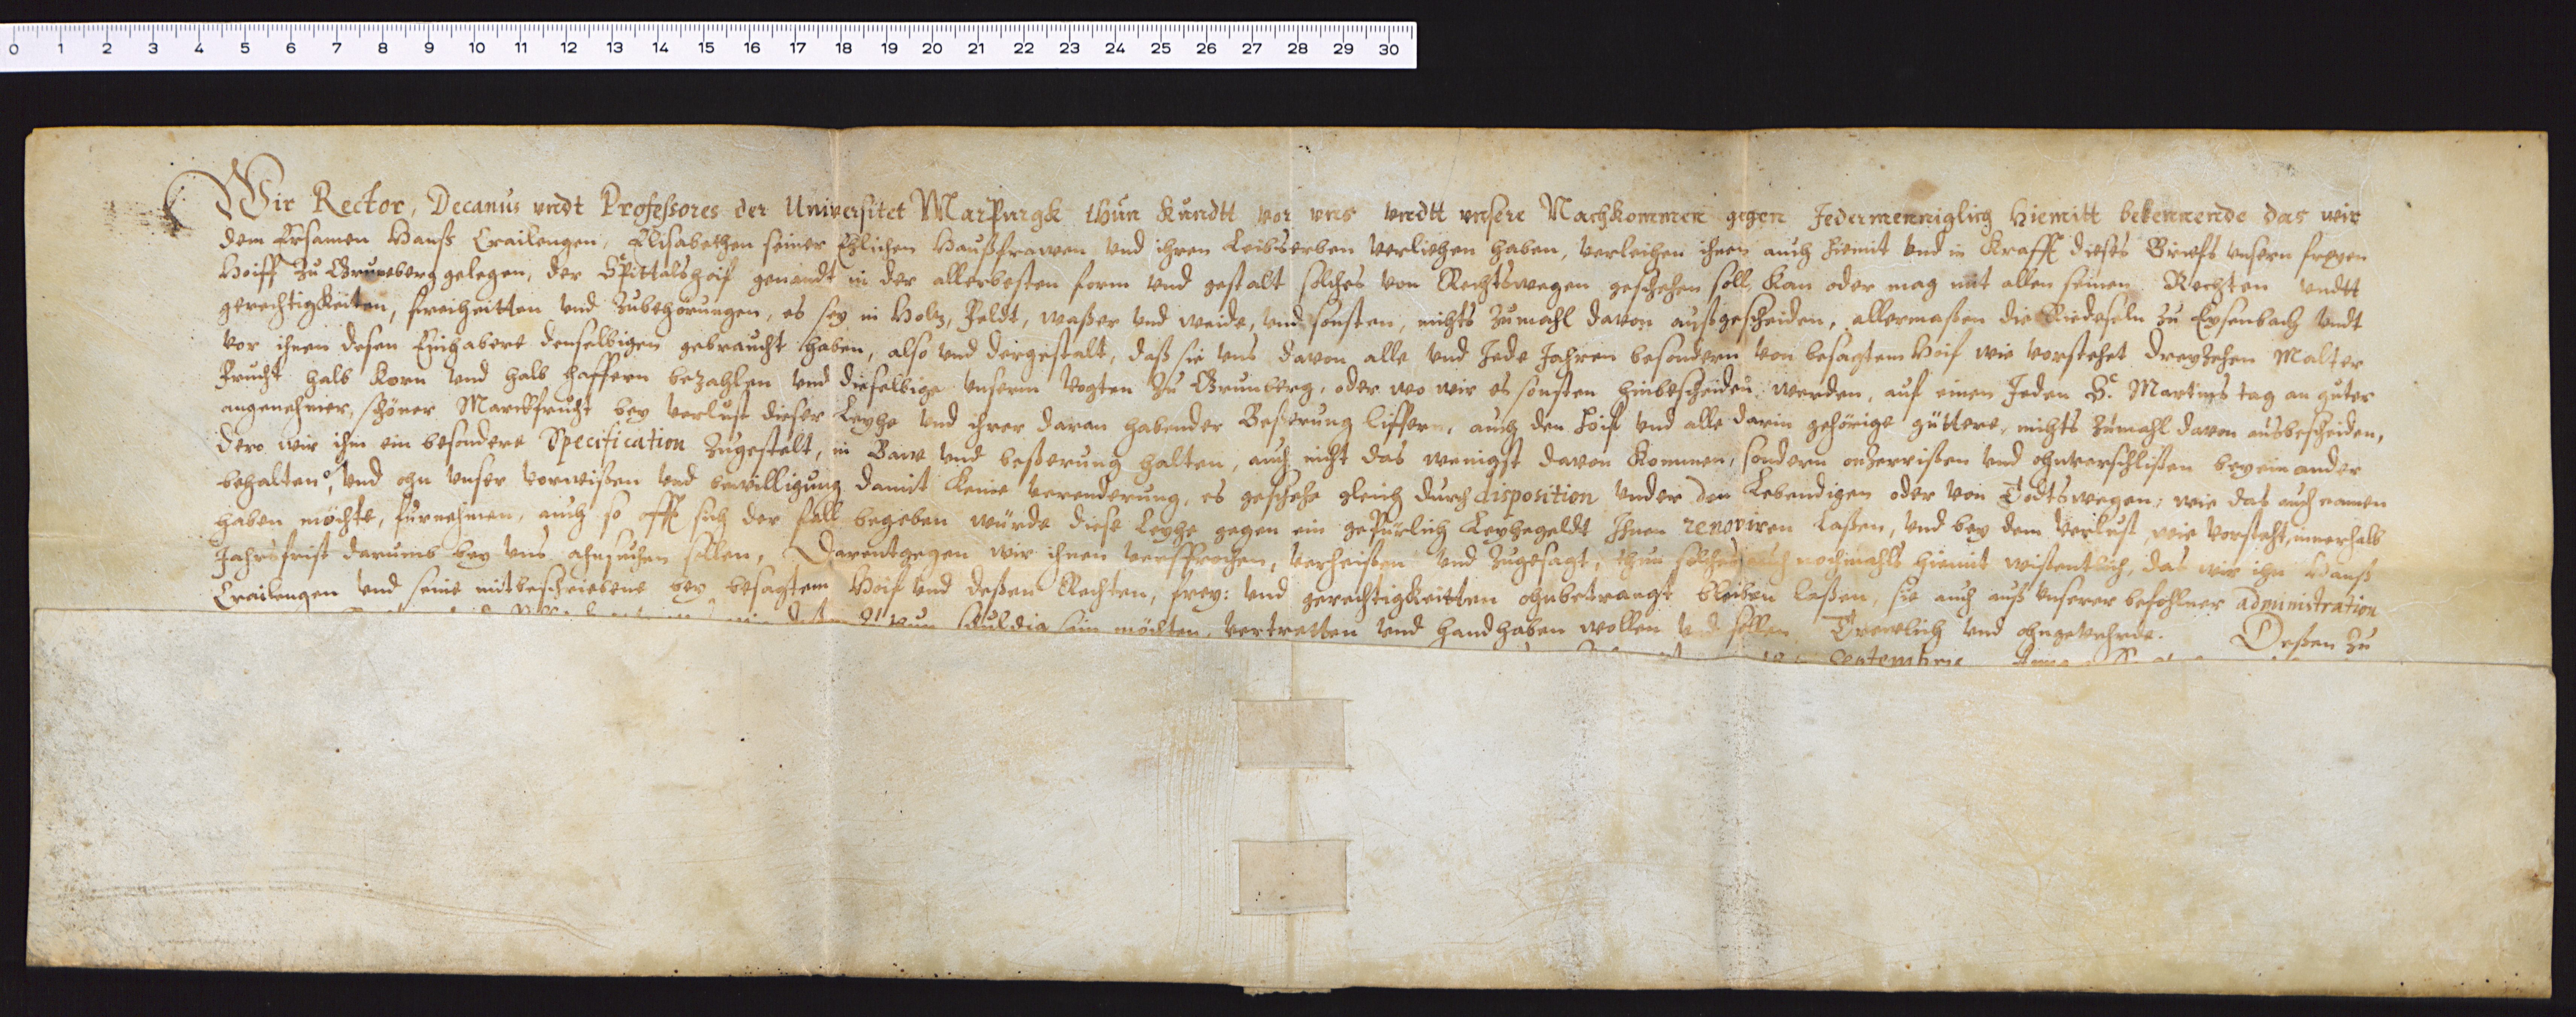 0 1 2 3 4 5 6 7 8 9 10 11 12 13 14 15 16 17 18 19 20 21 22 23 24 25 26 27 28 29 30
Wir Rector, Decanus vndt Professores der Universitet Marpurgk thun kundtt vor vns vndtt vnsere Nachkommen gegen Jedermenniglich hiemitt bekennende das wir
dem Ersamen Hanß Crailengen, Elisabethen seiner Ehlichen Haußfrawen, und ihren Leibserben verliehen haben, verleihen ihnen auch hiemit und in Krafft dieses Briefs unsern freyen
Hoiff zu Gruneberg gelegen, der Spittalshoif genandt in der allerbesten form und gestalt solches von Rechtswegen geschehen soll, kan oder mag mit allen seinen Rechten undtt
gerechtigkeiten, freiheitten und zubehörungen, es sey in Holtz, Feldt, waßer und weide, und sonsten, nichts zumahl davon außgescheiden, allermaßen die Riedeseln zu Eysenbach undt
vor ihnen desen Einhabere denselbigen gebraucht haben, also und dergestalt, daß sie uns davon alle und Jede Jahren besondern von besagtem Hoif wie vorstehet dreyzehen Malter
Frucht halb Korn und halb haffern bezahlen und dieselbige unserm Vogten zu Grunberg, oder wo wir es sonsten hinbescheiden werden, auf einen Jeden St. Martins tag an guter
angenehmer, schöner Marckfrucht bey verlust dieser Leyhe und ihrer daran habender Beßerung liffern, auch den Hoif und alle darin gehörige güttere, nichts zumahl davon ausbescheiden,
dero wir ihm ein besondere Specification zugestelt, in Baw und beßerung halten, auch nicht das wenigst davon kommen, sondern onzerrißen und ohnverschlißen beyeinander
behalten, und ohn unser vorwißen und bewilligung damit keine verenderung, es geschehe gleich durch disposition under den Lebendigen oder von Todtswegen, wie das auch namen
haben möchte, furnehmen, auch so offt sich der fall begeben würde diese Leyhe gegen ein gepürlich Leyhegeldt Ihnen renoviren laßen, und bey dem verlust, wie vorsteht, innerhalb
Jahrsfrist darumb bey uns ahnsuchen sollen, Darentgegen wir ihnen versprochen, verheißen und zugesagt, thun solches auch nochmahls hiemit wißentlich, das wir ihn Hanß
Crailengen und seine mitbeschriebene bey besagtem Hoif und deßen Rechten, frey: und gerechtigkeitten ohnbetrangt bleiben laßen, sie auch auß unserer befohlner administration
schuldig sein möchten, vertretten und handhaben wollen und sollen Trewlich und ohngevehrde. Deßen zu
Septembris Anno